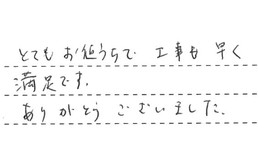 とてもお値うちで 工事も 早く
満足です。
ありがとう ございました。